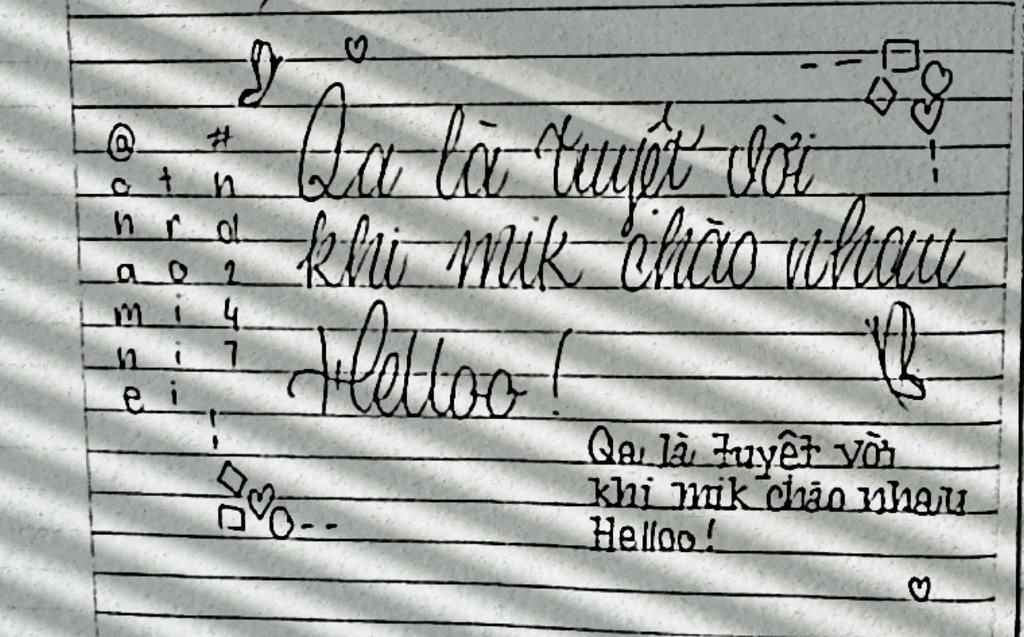 @
a t n
n r d
a o 2
m i 4
n i 7
e i
#
Qa là tuyệt vời
khi mik chào nhau
Helloo!
Qa là tuyệt vời
khi mik chào nhau
Helloo!